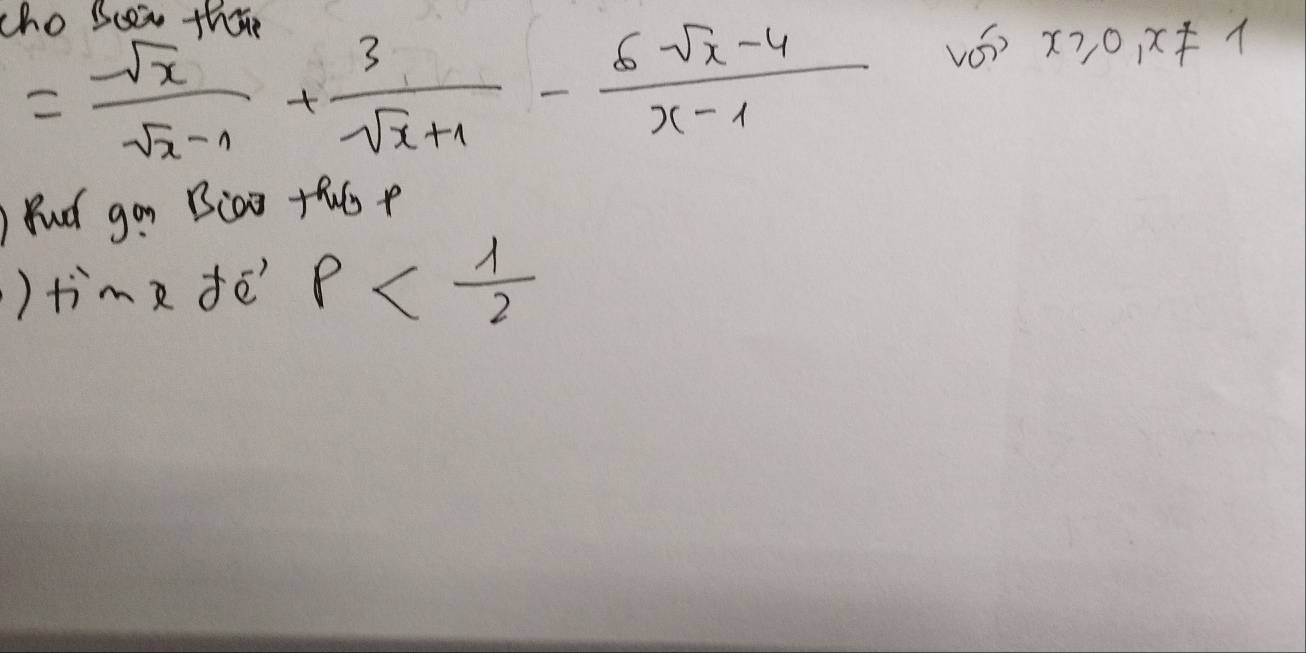 cho Biểu thức
= \frac{\sqrt{x}}{\sqrt{x}-1} + \frac{3}{\sqrt{x}+1} - \frac{6\sqrt{x}-4}{x-1} với x ≥ 0, x ≠ 1
) Rút gọn Biểu thức P
) tìm x để P < \frac{1}{2}